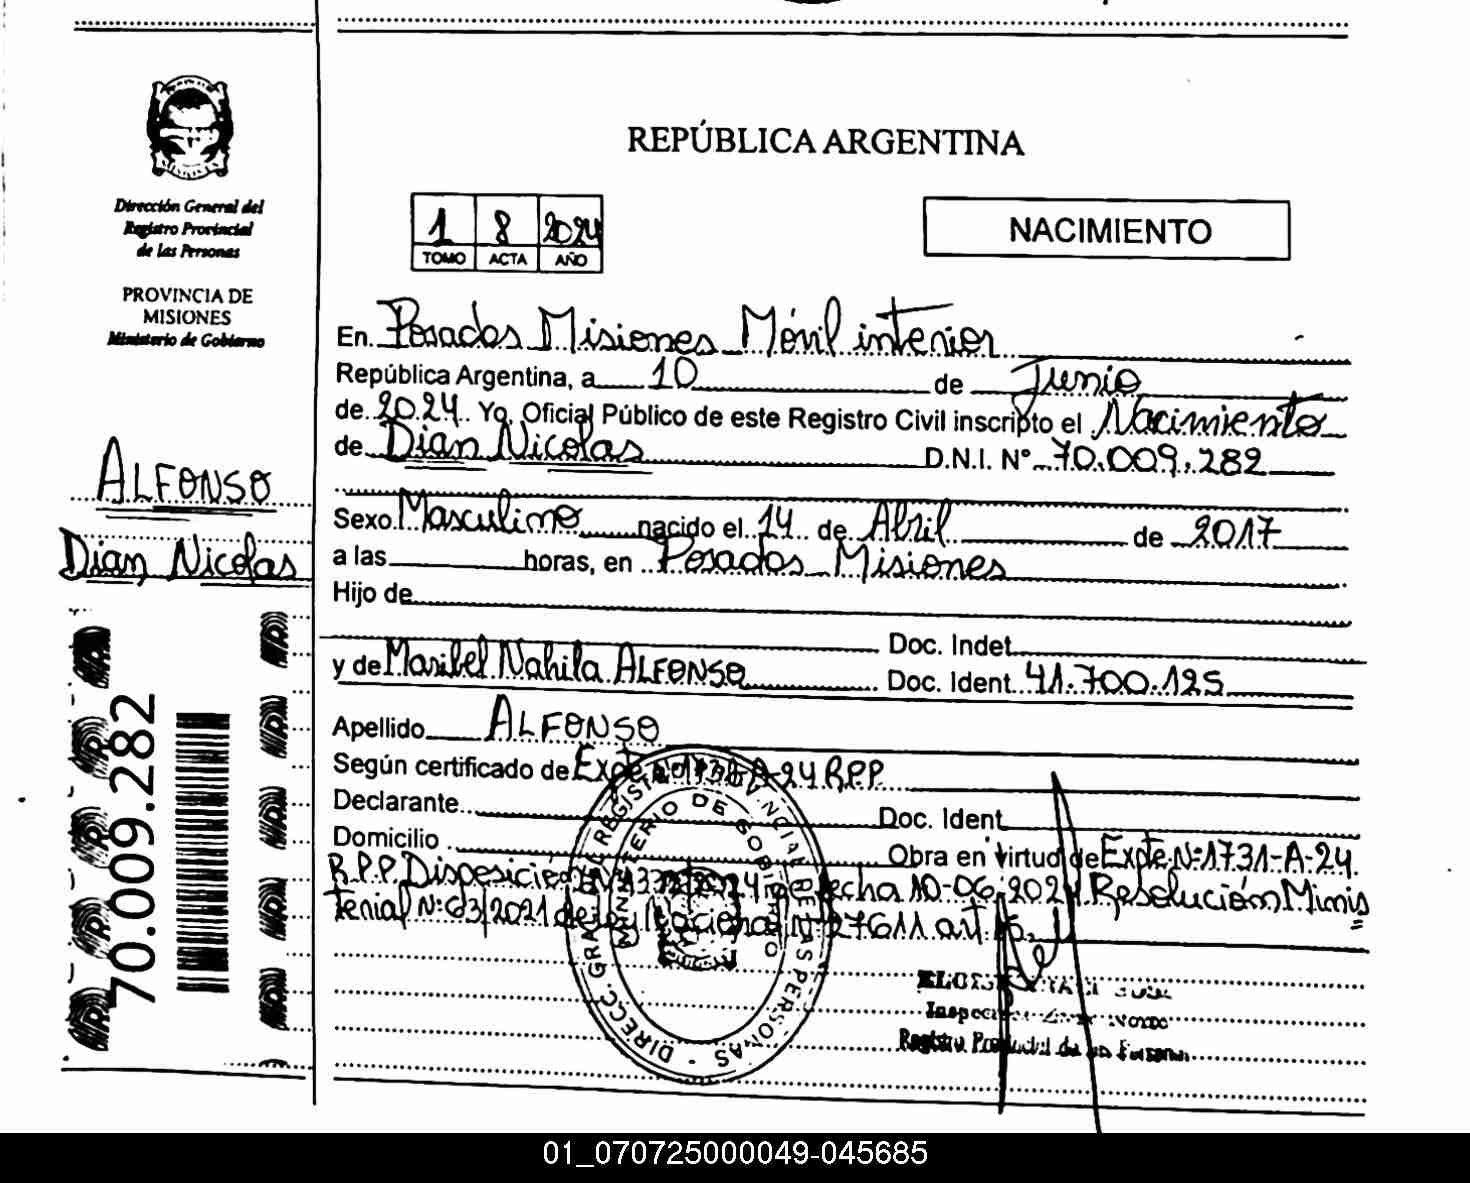 Dirección General del
Registro Provincial
de las Personas
PROVINCIA DE
MISIONES
Ministerio de Gobierno
ALFONSO
Dian Nicolas
70.009.282
REPÚBLICA ARGENTINA
1 8 2024
TOMO ACTA AÑO
NACIMIENTO
En Posadas Misiones Móvil interior
República Argentina, a 10 de Junio
de 2024 Yo, Oficial Público de este Registro Civil inscripto el Nacimiento
de Dian Nicolas D.N.I. N° 70.009.282
Sexo Masculino nacido el 14 de Abril de 2017
a las horas, en Posadas Misiones
Hijo de
Doc. Indet
y de Maribel Nahila ALFONSO Doc. Ident. 41.700.125
Apellido ALFONSO
Según certificado de Expte 1731 A-24 R.P.P.
Declarante Doc. Ident
Domicilio Obra en virtud de Expte N:1731-A-24
R.P.P. Disposición de fecha 10-06-2024 Resolución Minis
terial N:63/2021 de Ley Nacional N:27611 art
DIRECC. GRAL. REGISTRO PROVINCIAL DE LAS PERSONAS
MINISTERIO DE GOBIERNO
Registro Provincial de las Personas
01_070725000049-045685